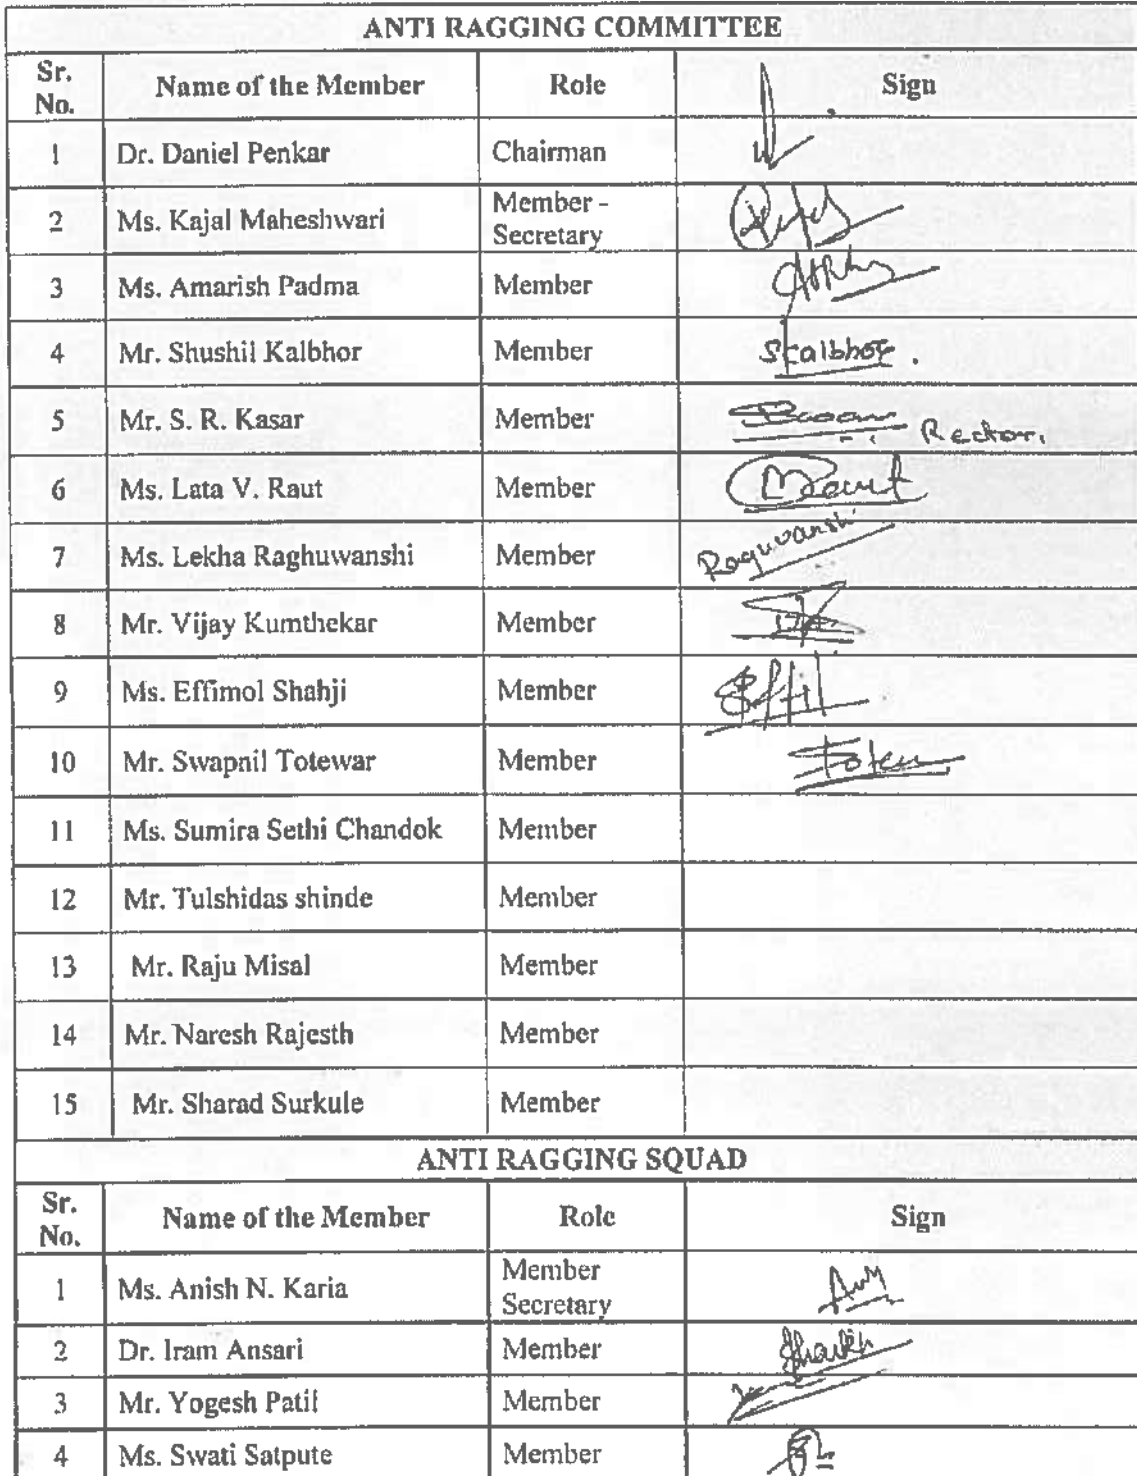 ANTI RAGGING COMMITTEE
Sr. No. Name of the Member Role Sign
1 Dr. Daniel Penkar Chairman
2 Ms. Kajal Maheshwari Member - Secretary
3 Ms. Amarish Padma Member
4 Mr. Shushil Kalbhor Member Skalbhor.
5 Mr. S. R. Kasar Member Rector.
6 Ms. Lata V. Raut Member
7 Ms. Lekha Raghuwanshi Member Raguvanshi
8 Mr. Vijay Kumthekar Member
9 Ms. Effimol Shahji Member
10 Mr. Swapnil Totewar Member
11 Ms. Sumira Sethi Chandok Member
12 Mr. Tulshidas shinde Member
13 Mr. Raju Misal Member
14 Mr. Naresh Rajesth Member
15 Mr. Sharad Surkule Member
ANTI RAGGING SQUAD
Sr. No. Name of the Member Role Sign
1 Ms. Anish N. Karia Member Secretary
2 Dr. Iram Ansari Member Shaikh
3 Mr. Yogesh Patil Member
4 Ms. Swati Satpute Member